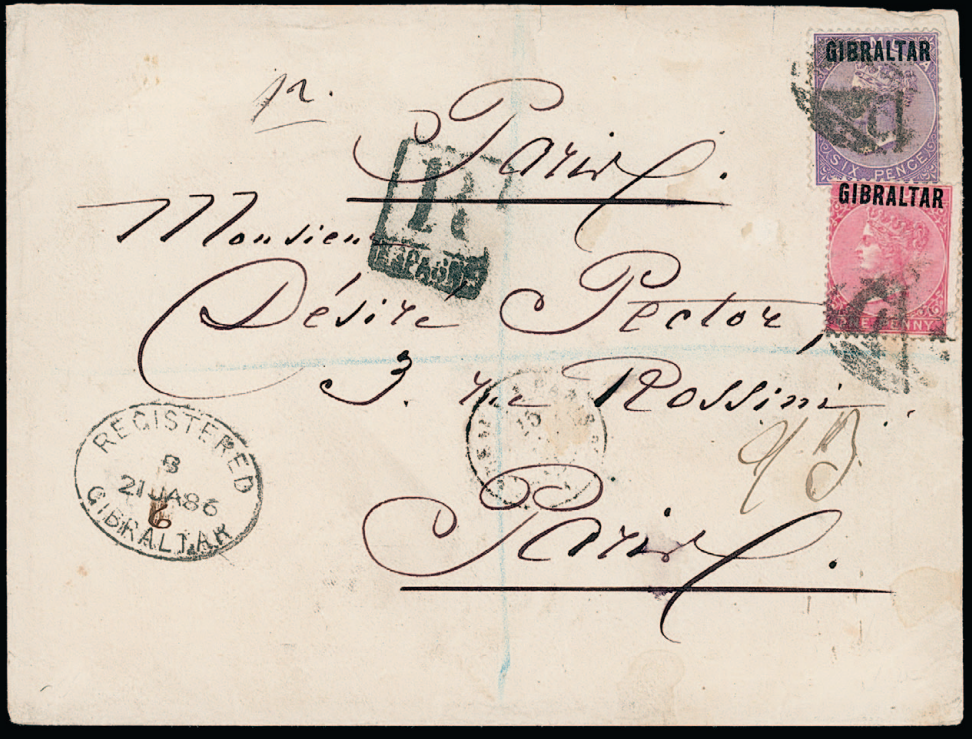 GIBRALTAR
SIX PENCE
GIBRALTAR
PENNY
pr. Paris.
R
ESPAGNE
Monsieur
Désiré Pector,
3. rue Rossini.
Paris.
REGISTERED
B
21 JA 86
6
GIBRALTAR
PARIS
15